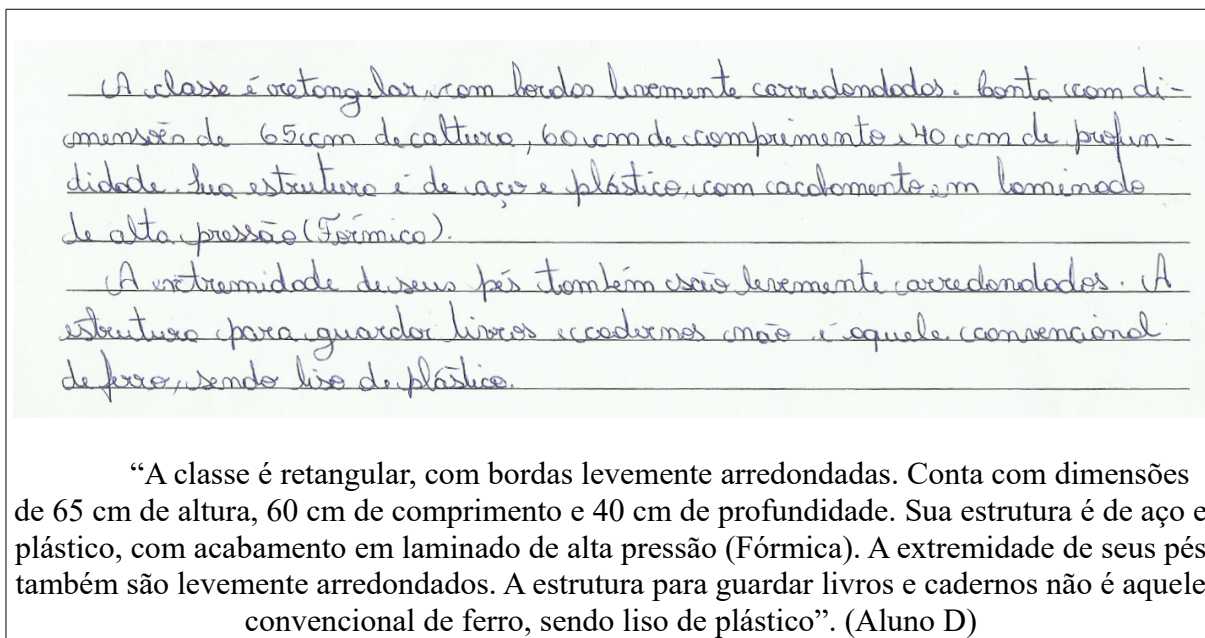 A classe é retangular, com bordas levemente arredondadas. Conta com di-
mensões de 65 cm de altura, 60 cm de comprimento e 40 cm de profun-
didade. Sua estrutura é de aço e plástico, com acabamento em laminado
de alta pressão (Fórmica).
A extremidade de seus pés também são levemente arredondados. A
estrutura para guardar livros e cadernos não é aquele convencional
de ferro, sendo liso de plástico.
“A classe é retangular, com bordas levemente arredondadas. Conta com dimensões
de 65 cm de altura, 60 cm de comprimento e 40 cm de profundidade. Sua estrutura é de aço e
plástico, com acabamento em laminado de alta pressão (Fórmica). A extremidade de seus pés
também são levemente arredondados. A estrutura para guardar livros e cadernos não é aquele
convencional de ferro, sendo liso de plástico”. (Aluno D)